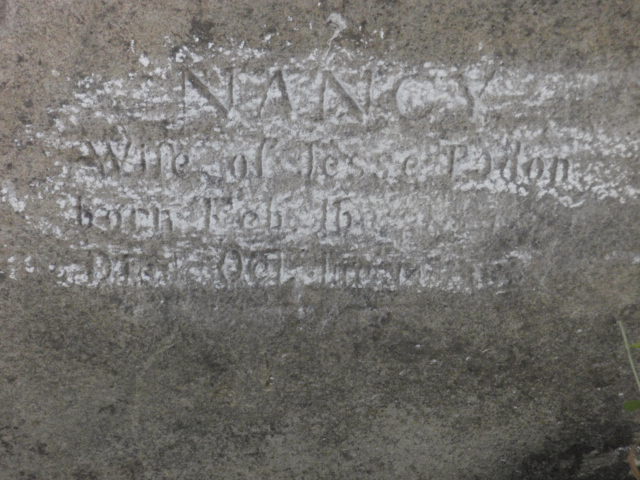 NANCY
Wife of Jesse Padon
born Feb
Died Oct